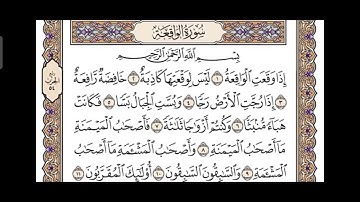 سُورَةُ الوَاقِعَةِ
بِسْمِ اللَّهِ الرَّحْمَٰنِ الرَّحِيمِ
إِذَا وَقَعَتِ الْوَاقِعَةُ ١ لَيْسَ لِوَقْعَتِهَا كَاذِبَةٌ ٢ خَافِضَةٌ رَّافِعَةٌ
٣ إِذَا رُجَّتِ الْأَرْضُ رَجًّا ٤ وَبُسَّتِ الْجِبَالُ بَسًّا ٥ فَكَانَتْ
هَبَاءً مُّنْبَثًّا ٦ وَكُنتُمْ أَزْوَاجًا ثَلَاثَةً ٧ فَأَصْحَابُ الْمَيْمَنَةِ
مَا أَصْحَابُ الْمَيْمَنَةِ ٨ وَأَصْحَابُ الْمَشْأَمَةِ مَا أَصْحَابُ
الْمَشْأَمَةِ ٩ وَالسَّابِقُونَ السَّابِقُونَ ١٠ أُولَٰئِكَ الْمُقَرَّبُونَ ١١
الحزب
٥٤